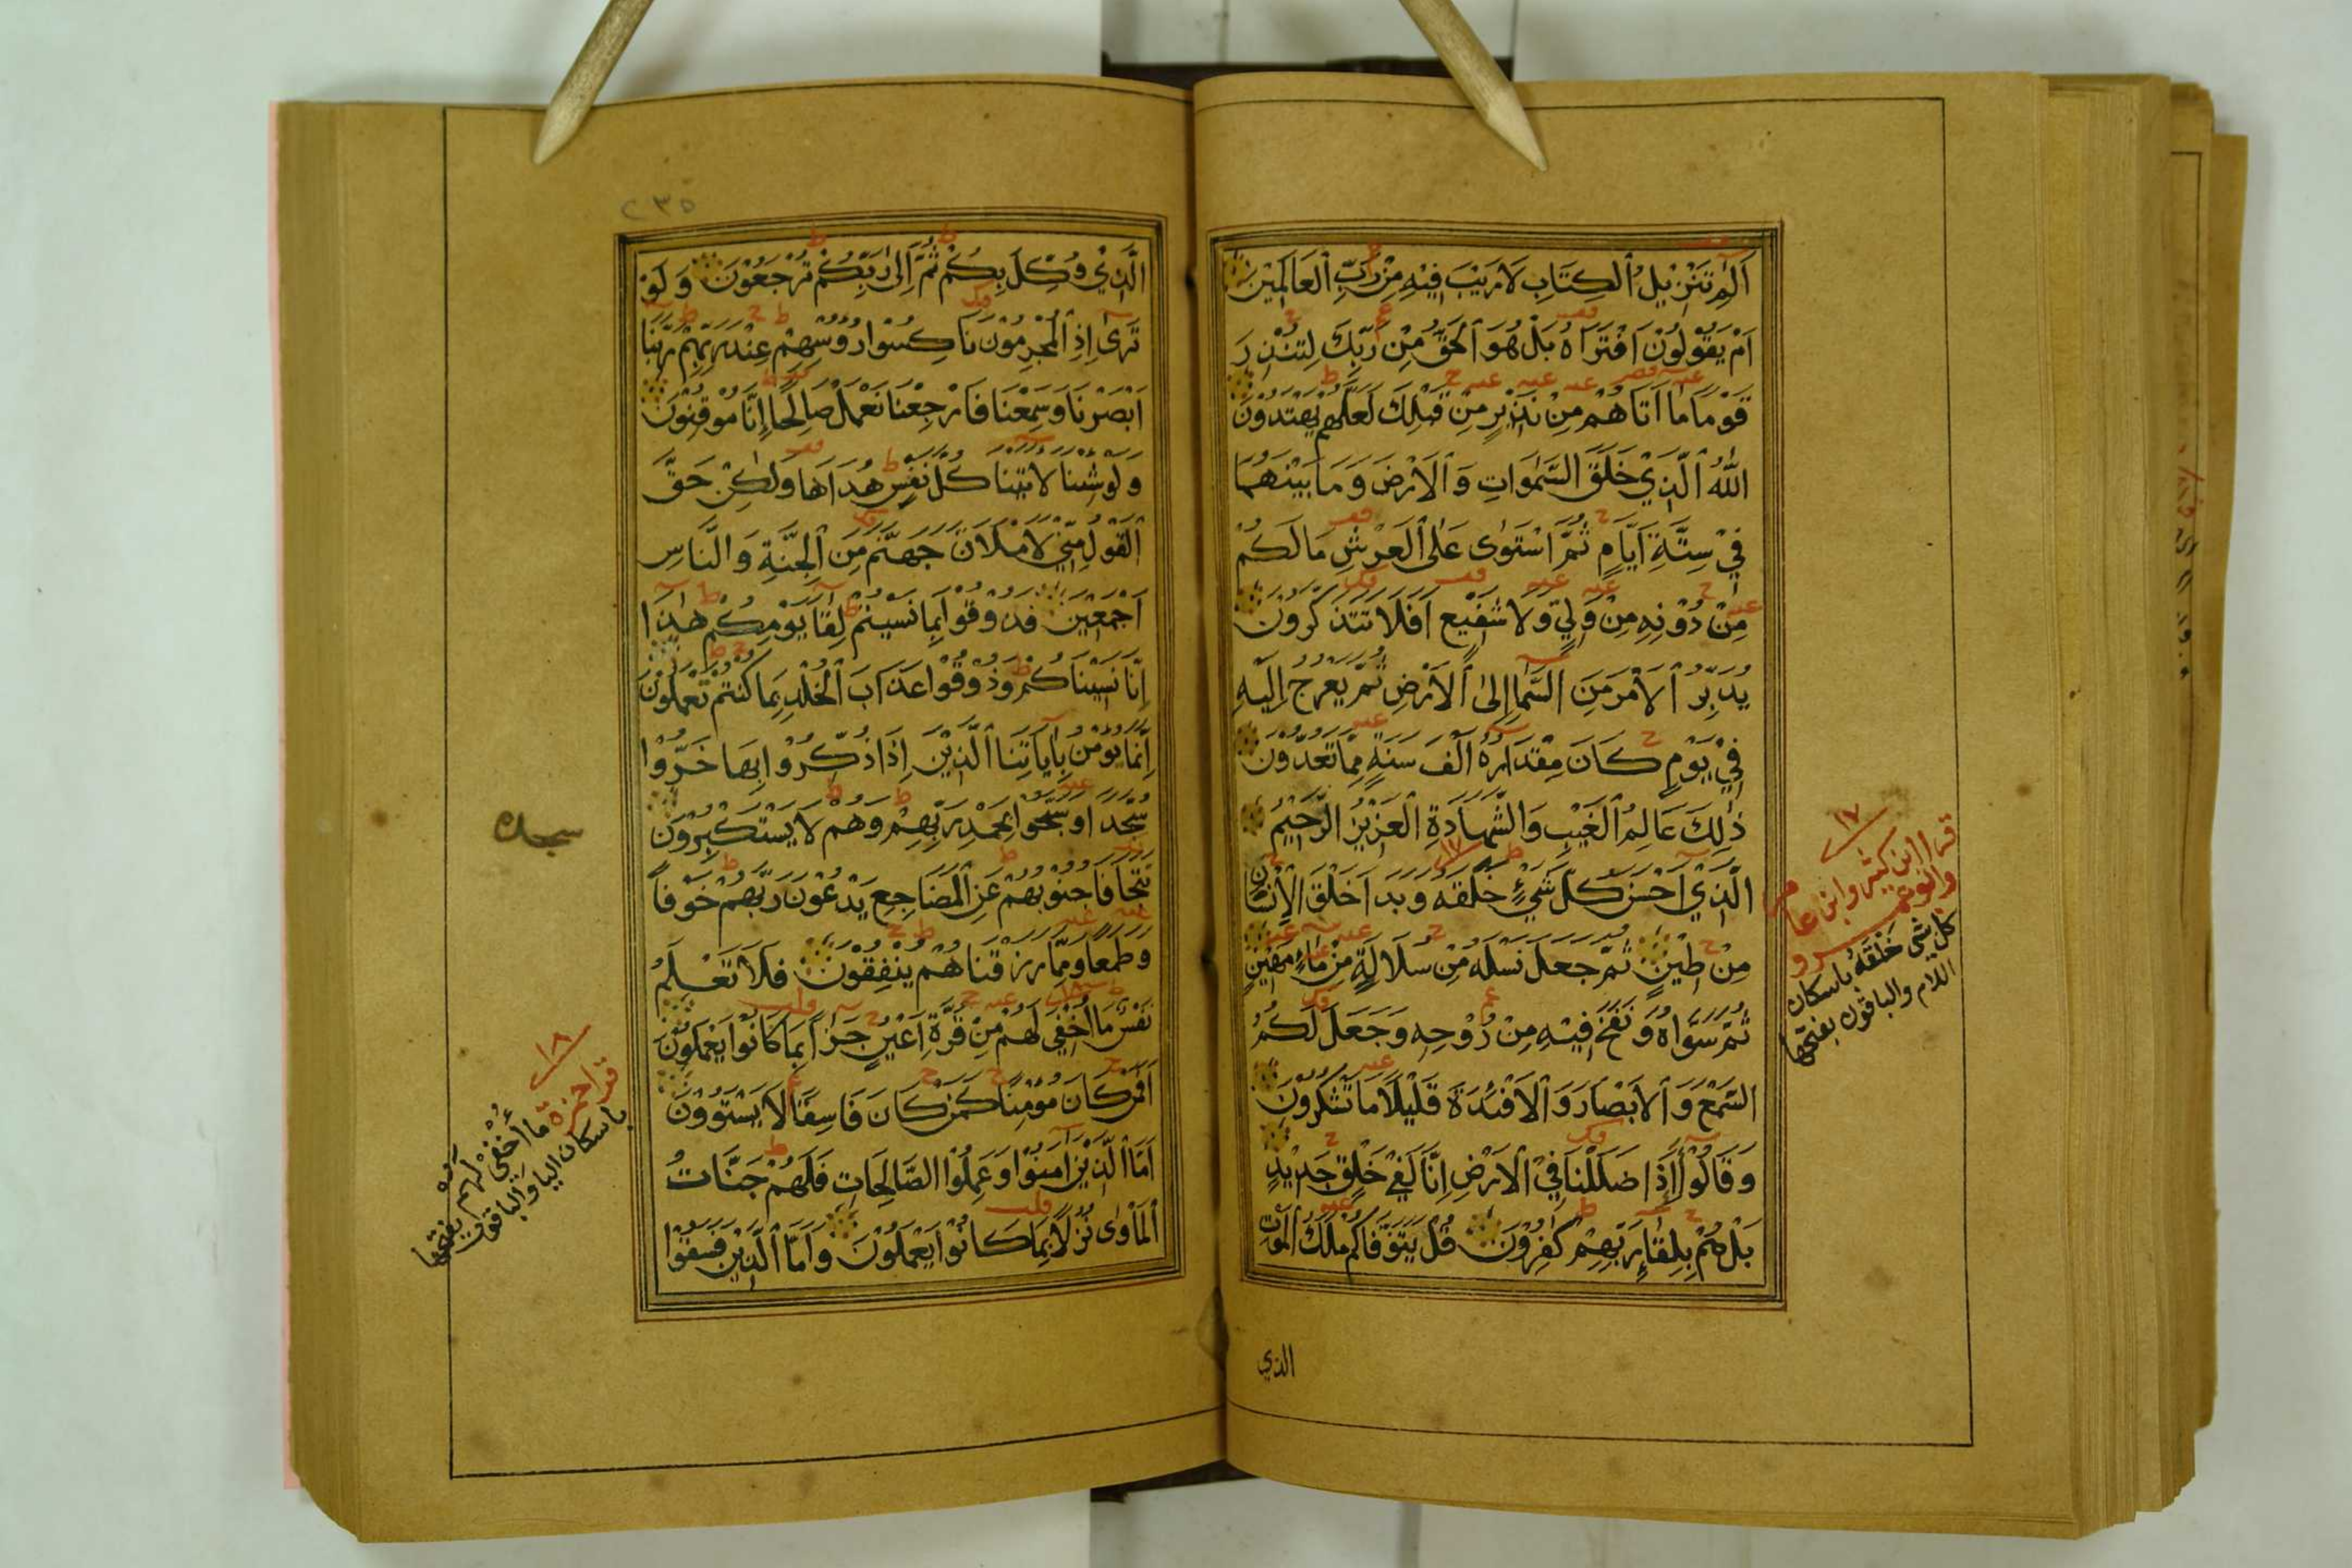 الٓمٓ تَنْزِيلُ الْكِتَابِ لَا رَيْبَ فِيْهِ مِنْ رَبِّ الْعَالَمِيْنَ
اَمْ يَقُوْلُوْنَ افْتَرَاهُ بَلْ هُوَ الْحَقُّ مِنْ رَبِّكَ لِتُنْذِرَ
قَوْمًا مَا اَتَاهُمْ مِنْ نَذِيْرٍ مِنْ قَبْلِكَ لَعَلَّهُمْ يَهْتَدُوْنَ
اللّٰهُ الَّذِيْ خَلَقَ السَّمٰوَاتِ وَالْاَرْضَ وَمَا بَيْنَهُمَا
فِيْ سِتَّةِ اَيَّامٍ ثُمَّ اسْتَوٰى عَلَى الْعَرْشِ مَا لَكُمْ
مِنْ دُوْنِهِ مِنْ وَلِيٍّ وَلَا شَفِيْعٍ اَفَلَا تَتَذَكَّرُوْنَ
يُدَبِّرُ الْاَمْرَ مِنَ السَّمَاۤ اِلَى الْاَرْضِ ثُمَّ يَعْرُجُ اِلَيْهِ
فِيْ يَوْمٍ كَانَ مِقْدَارُهُ اَلْفَ سَنَةٍ مِمَّا تَعُدُّوْنَ
ذٰلِكَ عَالِمُ الْغَيْبِ وَالشَّهَادَةِ الْعَزِيْزُ الرَّحِيْمُ
الَّذِيْ اَحْسَنَ كُلَّ شَيْءٍ خَلَقَهُ وَبَدَاَ خَلْقَ الْاِنْسَانِ
مِنْ طِيْنٍ ثُمَّ جَعَلَ نَسْلَهُ مِنْ سُلَالَةٍ مِنْ مَاءٍ مَهِيْنٍ
ثُمَّ سَوَّاهُ وَنَفَخَ فِيْهِ مِنْ رُوْحِهِ وَجَعَلَ لَكُمُ
السَّمْعَ وَالْاَبْصَارَ وَالْاَفْئِدَةَ قَلِيْلًا مَا تَشْكُرُوْنَ
وَقَالُوْا أَإِذَا ضَلَلْنَا فِيْ الْاَرْضِ اِنَّا لَفِيْ خَلْقٍ جَدِيْدٍ
بَلْ هُمْ بِلِقَاۤءِ رَبِّهِمْ كٰفِرُوْنَ قُلْ يَتَوَفَّاكُمْ مَلَكُ الْمَوْتِ
الذي
١٧
قرا ابن كثير وابن عامر
وابو عمرو
كل شي خَلْقَهُ باسكان
اللام والباقون بفتحها
٢٣٥
الَّذِيْ وُكِّلَ بِكُمْ ثُمَّ اِلٰى رَبِّكُمْ تُرْجَعُوْنَ وَلَوْ
تَرٰى اِذِ الْمُجْرِمُوْنَ نَاكِسُوْا رُؤُسِهِمْ عِنْدَ رَبِّهِمْ رَبَّنَا
اَبْصَرْنَا وَسَمِعْنَا فَارْجِعْنَا نَعْمَلْ صَالِحًا اِنَّا مُوْقِنُوْنَ
وَلَوْ شِئْنَا لَاٰتَيْنَا كُلَّ نَفْسٍ هُدَاهَا وَلٰكِنْ حَقَّ
الْقَوْلُ مِنِّيْ لَاَمْلَاَنَّ جَهَنَّمَ مِنَ الْجِنَّةِ وَالنَّاسِ
اَجْمَعِيْنَ فَذُوْقُوْا بِمَا نَسِيْتُمْ لِقَاۤ يَوْمِكُمْ هٰذَا
اِنَّا نَسِيْنَاكُمْ وَذُوْقُوْا عَذَابَ الْخُلْدِ بِمَا كُنْتُمْ تَعْمَلُوْنَ
اِنَّمَا يُؤْمِنُ بِاٰيَاتِنَا الَّذِيْنَ اِذَا ذُكِّرُوْا بِهَا خَرُّوْا
سُجَّدًا وَسَبَّحُوْا بِحَمْدِ رَبِّهِمْ وَهُمْ لَا يَسْتَكْبِرُوْنَ
تَتَجَافَا جُنُوْبُهُمْ عَنِ الْمَضَاجِعِ يَدْعُوْنَ رَبَّهُمْ خَوْفًا
وَطَمَعًا وَمِمَّا رَزَقْنَاهُمْ يُنْفِقُوْنَ فَلَا تَعْلَمُ
نَفْسٌ مَا اُخْفِيَ لَهُمْ مِنْ قُرَّةِ اَعْيُنٍ جَزَاۤءً بِمَا كَانُوْا يَعْمَلُوْنَ
اَفَمَنْ كَانَ مُؤْمِنًا كَمَنْ كَانَ فَاسِقًا لَا يَسْتَوُوْنَ
اَمَّا الَّذِيْنَ اٰمَنُوْا وَعَمِلُوا الصَّالِحَاتِ فَلَهُمْ جَنَّاتُ
الْمَاْوٰى نُزُلًا بِمَا كَانُوْا يَعْمَلُوْنَ وَاَمَّا الَّذِيْنَ فَسَقُوْا
سجده
١٨
قرا حمزة ما أُخْفِيْ لهم
باسكان اليا والباقون بفتحها